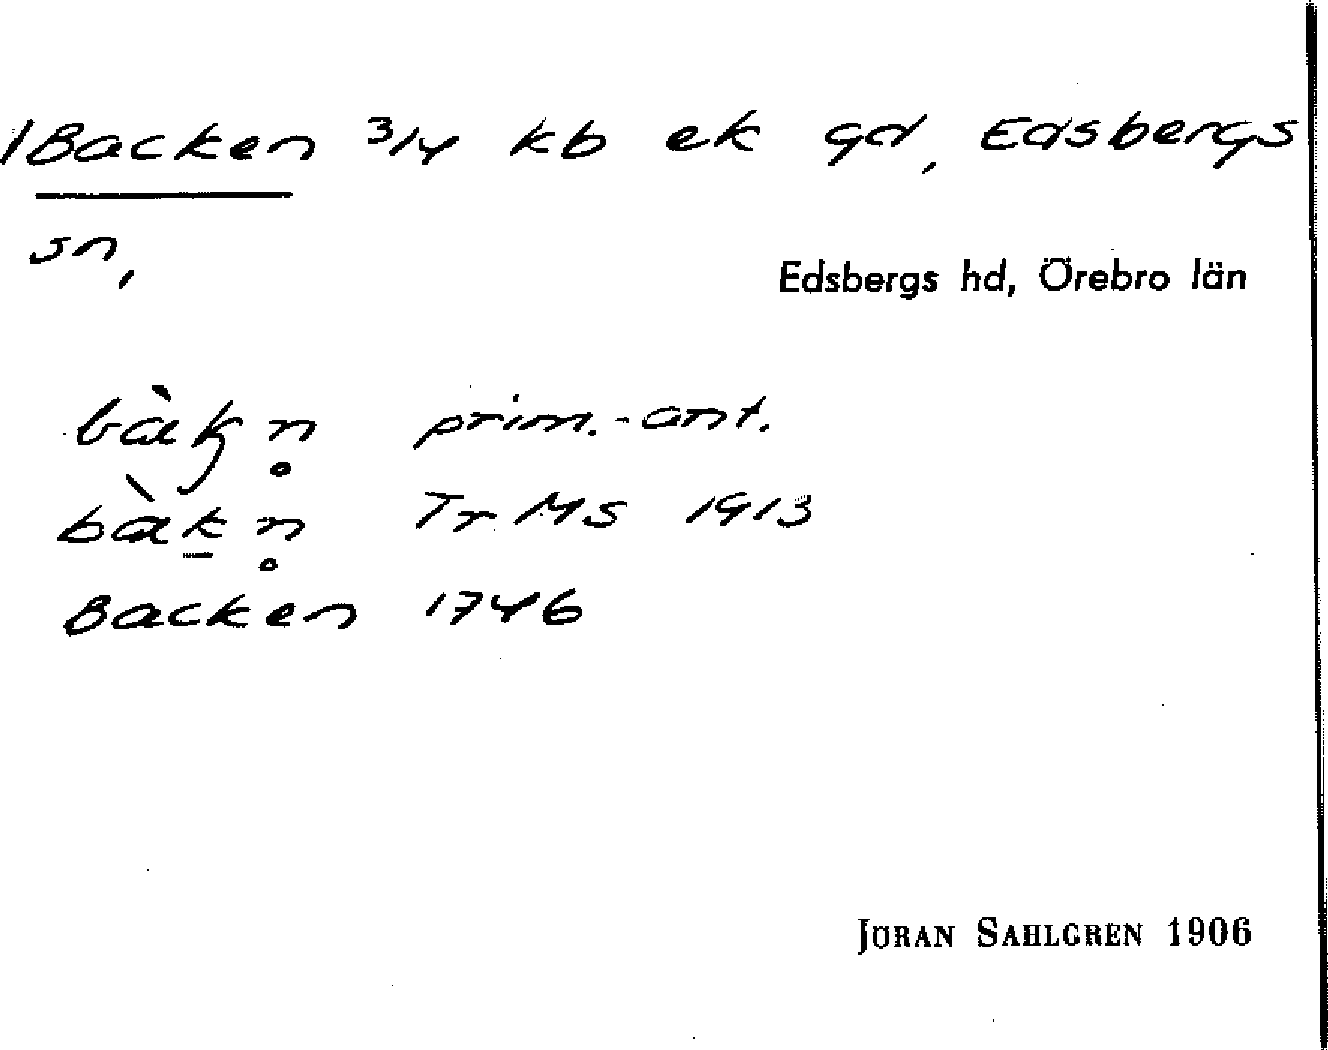 /Backen 3/4 kb ek gd, Edsbergs
sn,
Edsbergs hd, Örebro län
bàkn̥ prim.-ant.
bàḵn̥ Tr MS 1913
Backen 1746
JÖRAN SAHLGREN 1906